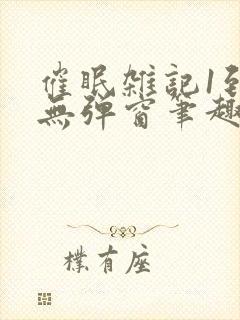 催眠雑記1至
無弹窗筆趣
樸有座